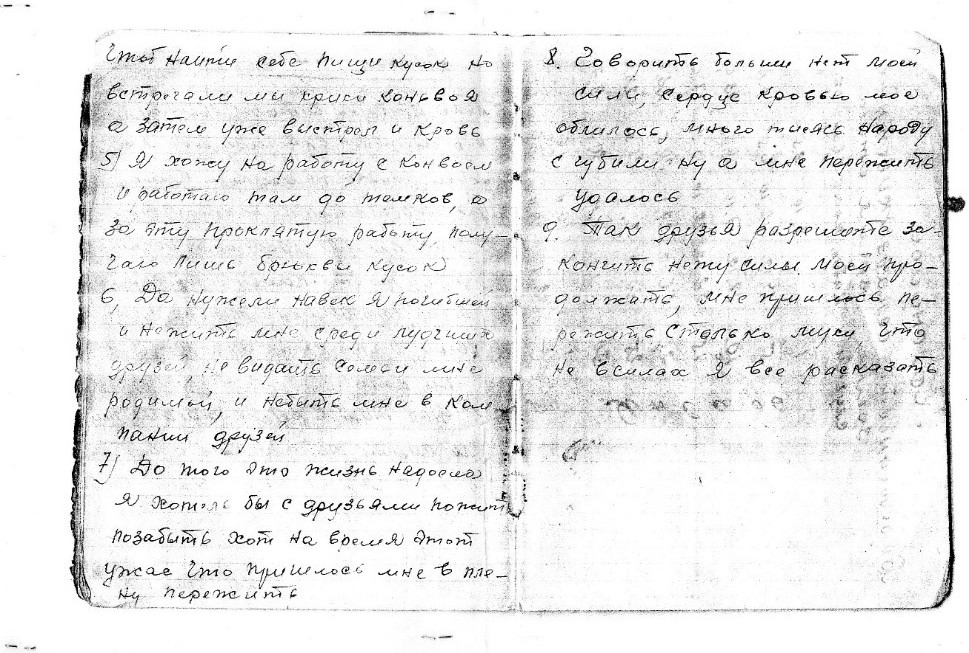 Чтоб найти себе пищи кусок но
встречали мы крики коньвоя
а затем уже выстрел и кровь
5) Я хожу на работу с конвоем
и работаю там до темков, а
за эту проклятую работу полу-
чаю лишь брюквы кусок
6, Да нужели навек я погибший
и нежить мне среди лудчших
друзей, не видать семьи мне
родимой, и небыть мне в ком
пании друзей
7) До того это жизнь надоела
я хотель бы с друзьями пожить
позабыть хот на время этот
ужас что пришлось мне в пле-
ну пережить
8. Говорить больши нет моей
силы, сердце кровью мое
облилось, много тысясь народу
сгубили ну а мне пережить
удалось
9. Так друзья разрешите за-
кончить нету силы моей про-
должать, мне пришлось пе-
режить столько муки, что
не всилах я все расказать